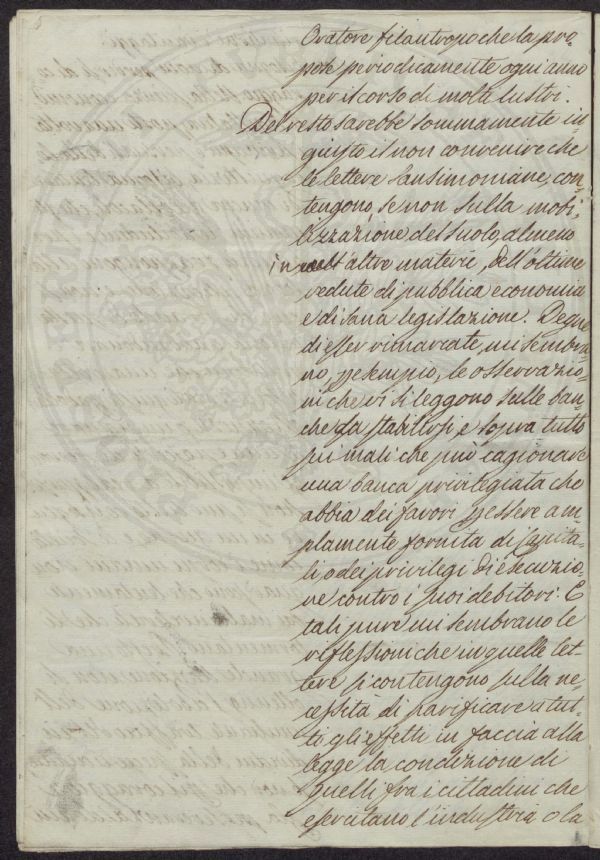 Oratore filantropo che la pro=
pose periodicamente ogni anno
per il corso di molti lustri.
Del resto sarebbe sommamente in=
giusto il non convenire che
le lettere Sansimoniane, con=
tengono, se non sulla mobi=
lizzazione del suolo, almeno
in altre materie, dell'ottime
vedute di pubblica economia
e di sana legislazione. Degne
di esser rimarcate, mi sembra=
no, p esempio, le osservazio=
ni che vi si leggono sulle ban=
che da stabilirsi, e sopra tutto
su i mali che può cagionare
una banca privilegiata che
abbia dei favori p essere am=
plamente fornita di capita=
li, o dei privilegi di esecuzio=
ne contro i suoi debitori: E
tali pure mi sembrano le
riflessioni che in quelle let=
tere si contengono sulla ne=
cessità di parificare a tut=
ti gli effetti in faccia alla
legge la condizione di
quelli fra i cittadini che
esercitano l'industria o la